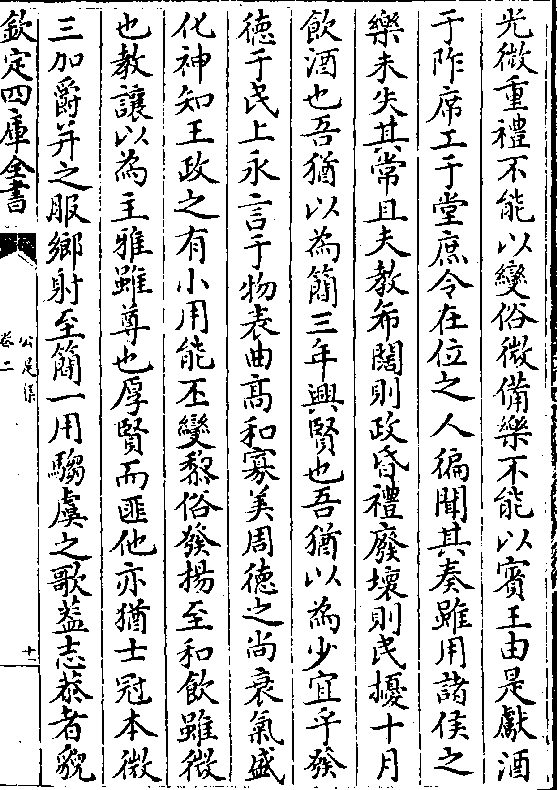 光微重禮不能以變俗微備樂不能以賓王由是獻酒
于阼席工于堂庶令在位之人徧聞其奏雖用諸侯之
樂未失其常且夫教布闊則政昏禮廢壞則民擾十月
飲酒也吾猶以為簡三年興賢也吾猶以為少宜乎發
德于民上永言于物表曲髙和寡美周德之尚衰氣盛
化神知王政之有小用能丕變黎俗發揚至和飲雖微
也教讓以為主雅雖尊也厚賢而匪他亦猶士冠本微
三加爵弁之服鄉射至簡一用騶虞之歌蓋志恭者貌
欽定四庫全書
公是集
卷二
十二